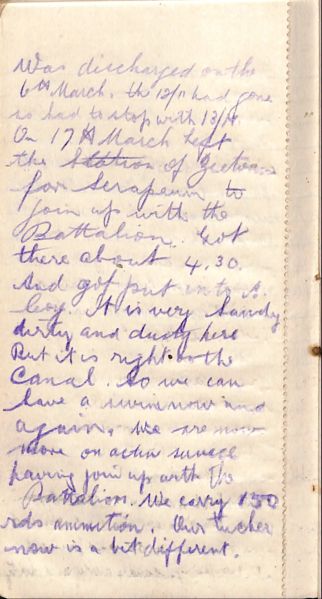 Was discharged on the
6th March. the 12/11 had gone
so had to stop with 13/11.
On 17th March left
the Station of Zeitoun
for Serapeum to
join up with the
Battalion. Got
there about 4.30.
And got put into A.
Coy. It is very Sandy
dirty and dusty here
But it is right on the
Canal. So we can
have a swim now and
again. We are now
more on activ survice
having join up with the
Battalion. We carry 150
rds amination. Our tucher
now is a bit different.